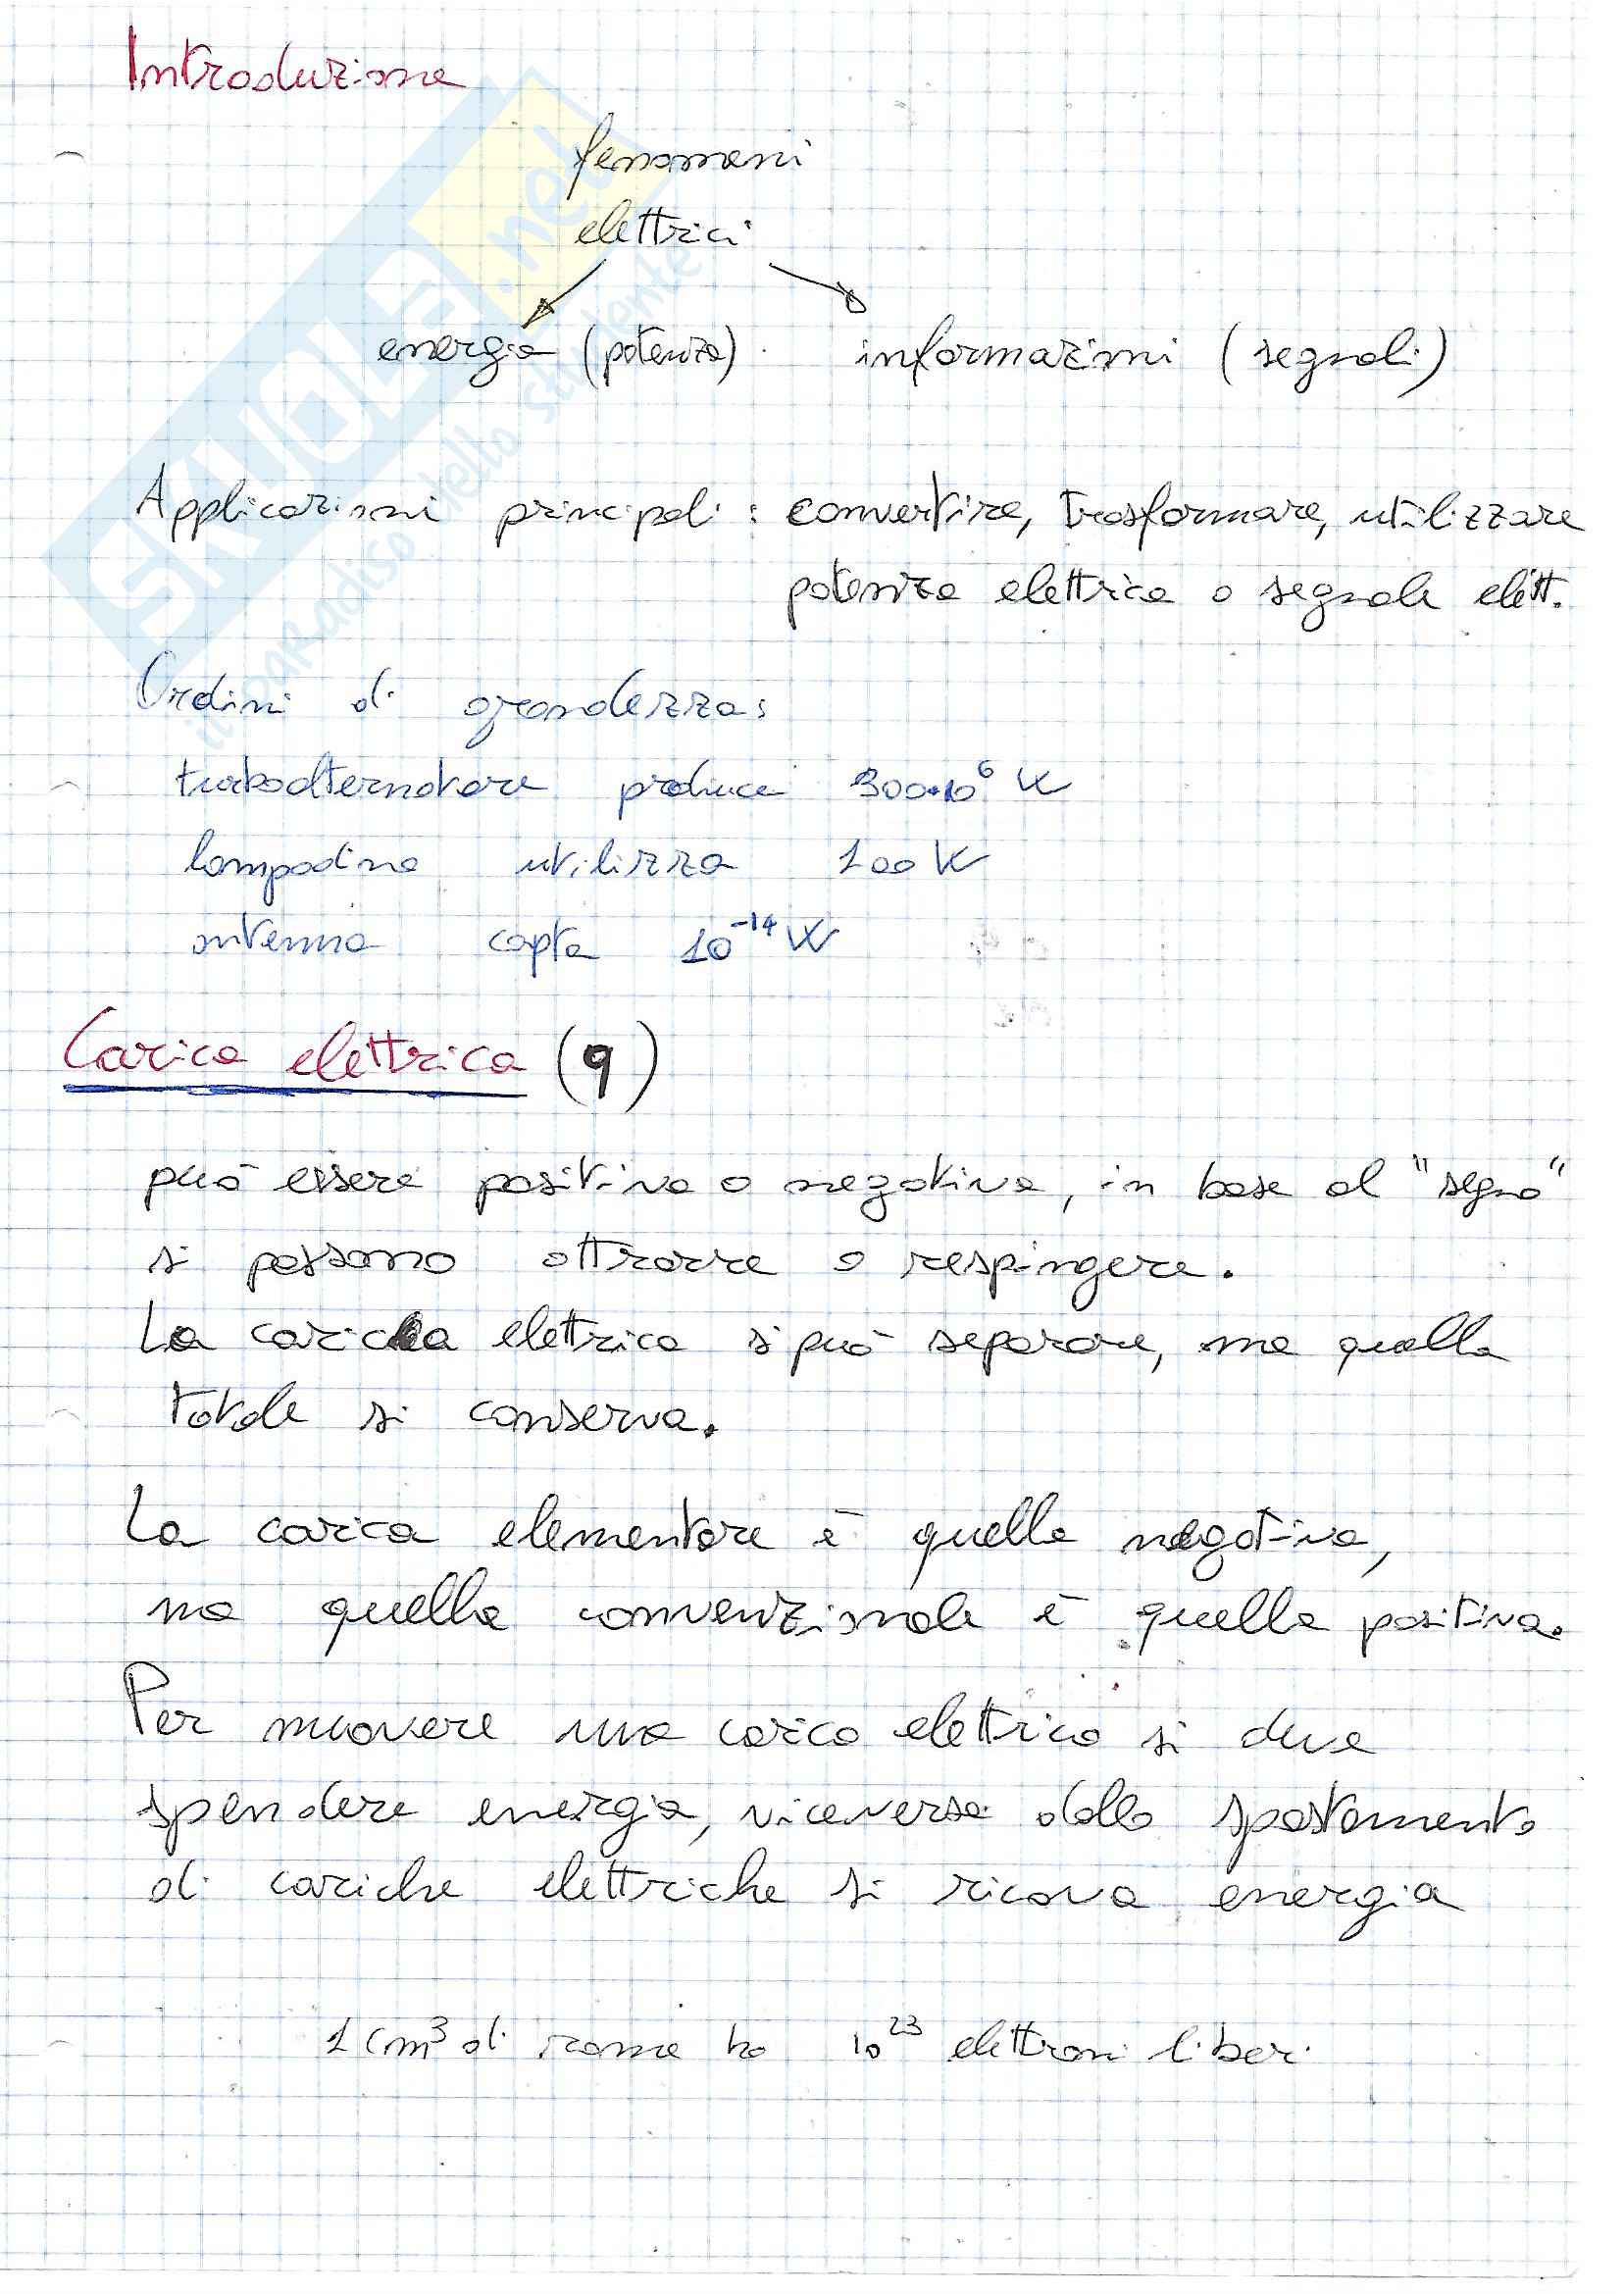 Introduzione
fenomeni
elettrici
energia (potenza) informazioni (segnali)
Applicazioni principali: convertire, trasformare, utilizzare
potenza elettrica o segnale elett.
Ordini di grandezza:
turboalternatore produce 300·10⁶ W
lampadina utilizza 100 W
antenna capta 10⁻¹⁴ W
Carica elettrica (q)
può essere positiva o negativa, in base al "segno"
si possono attrarre o respingere.
La carica elettrica si può separare, ma quella
totale si conserva.
La carica elementare è quella negativa,
ma quella convenzionale è quella positiva.
Per muovere una carica elettrica si deve
spendere energia, viceversa dallo spostamento
di cariche elettriche si ricava energia
1 cm³ di rame ha 10²³ elettroni liberi
SKUOLA.net
il paradiso dello studente